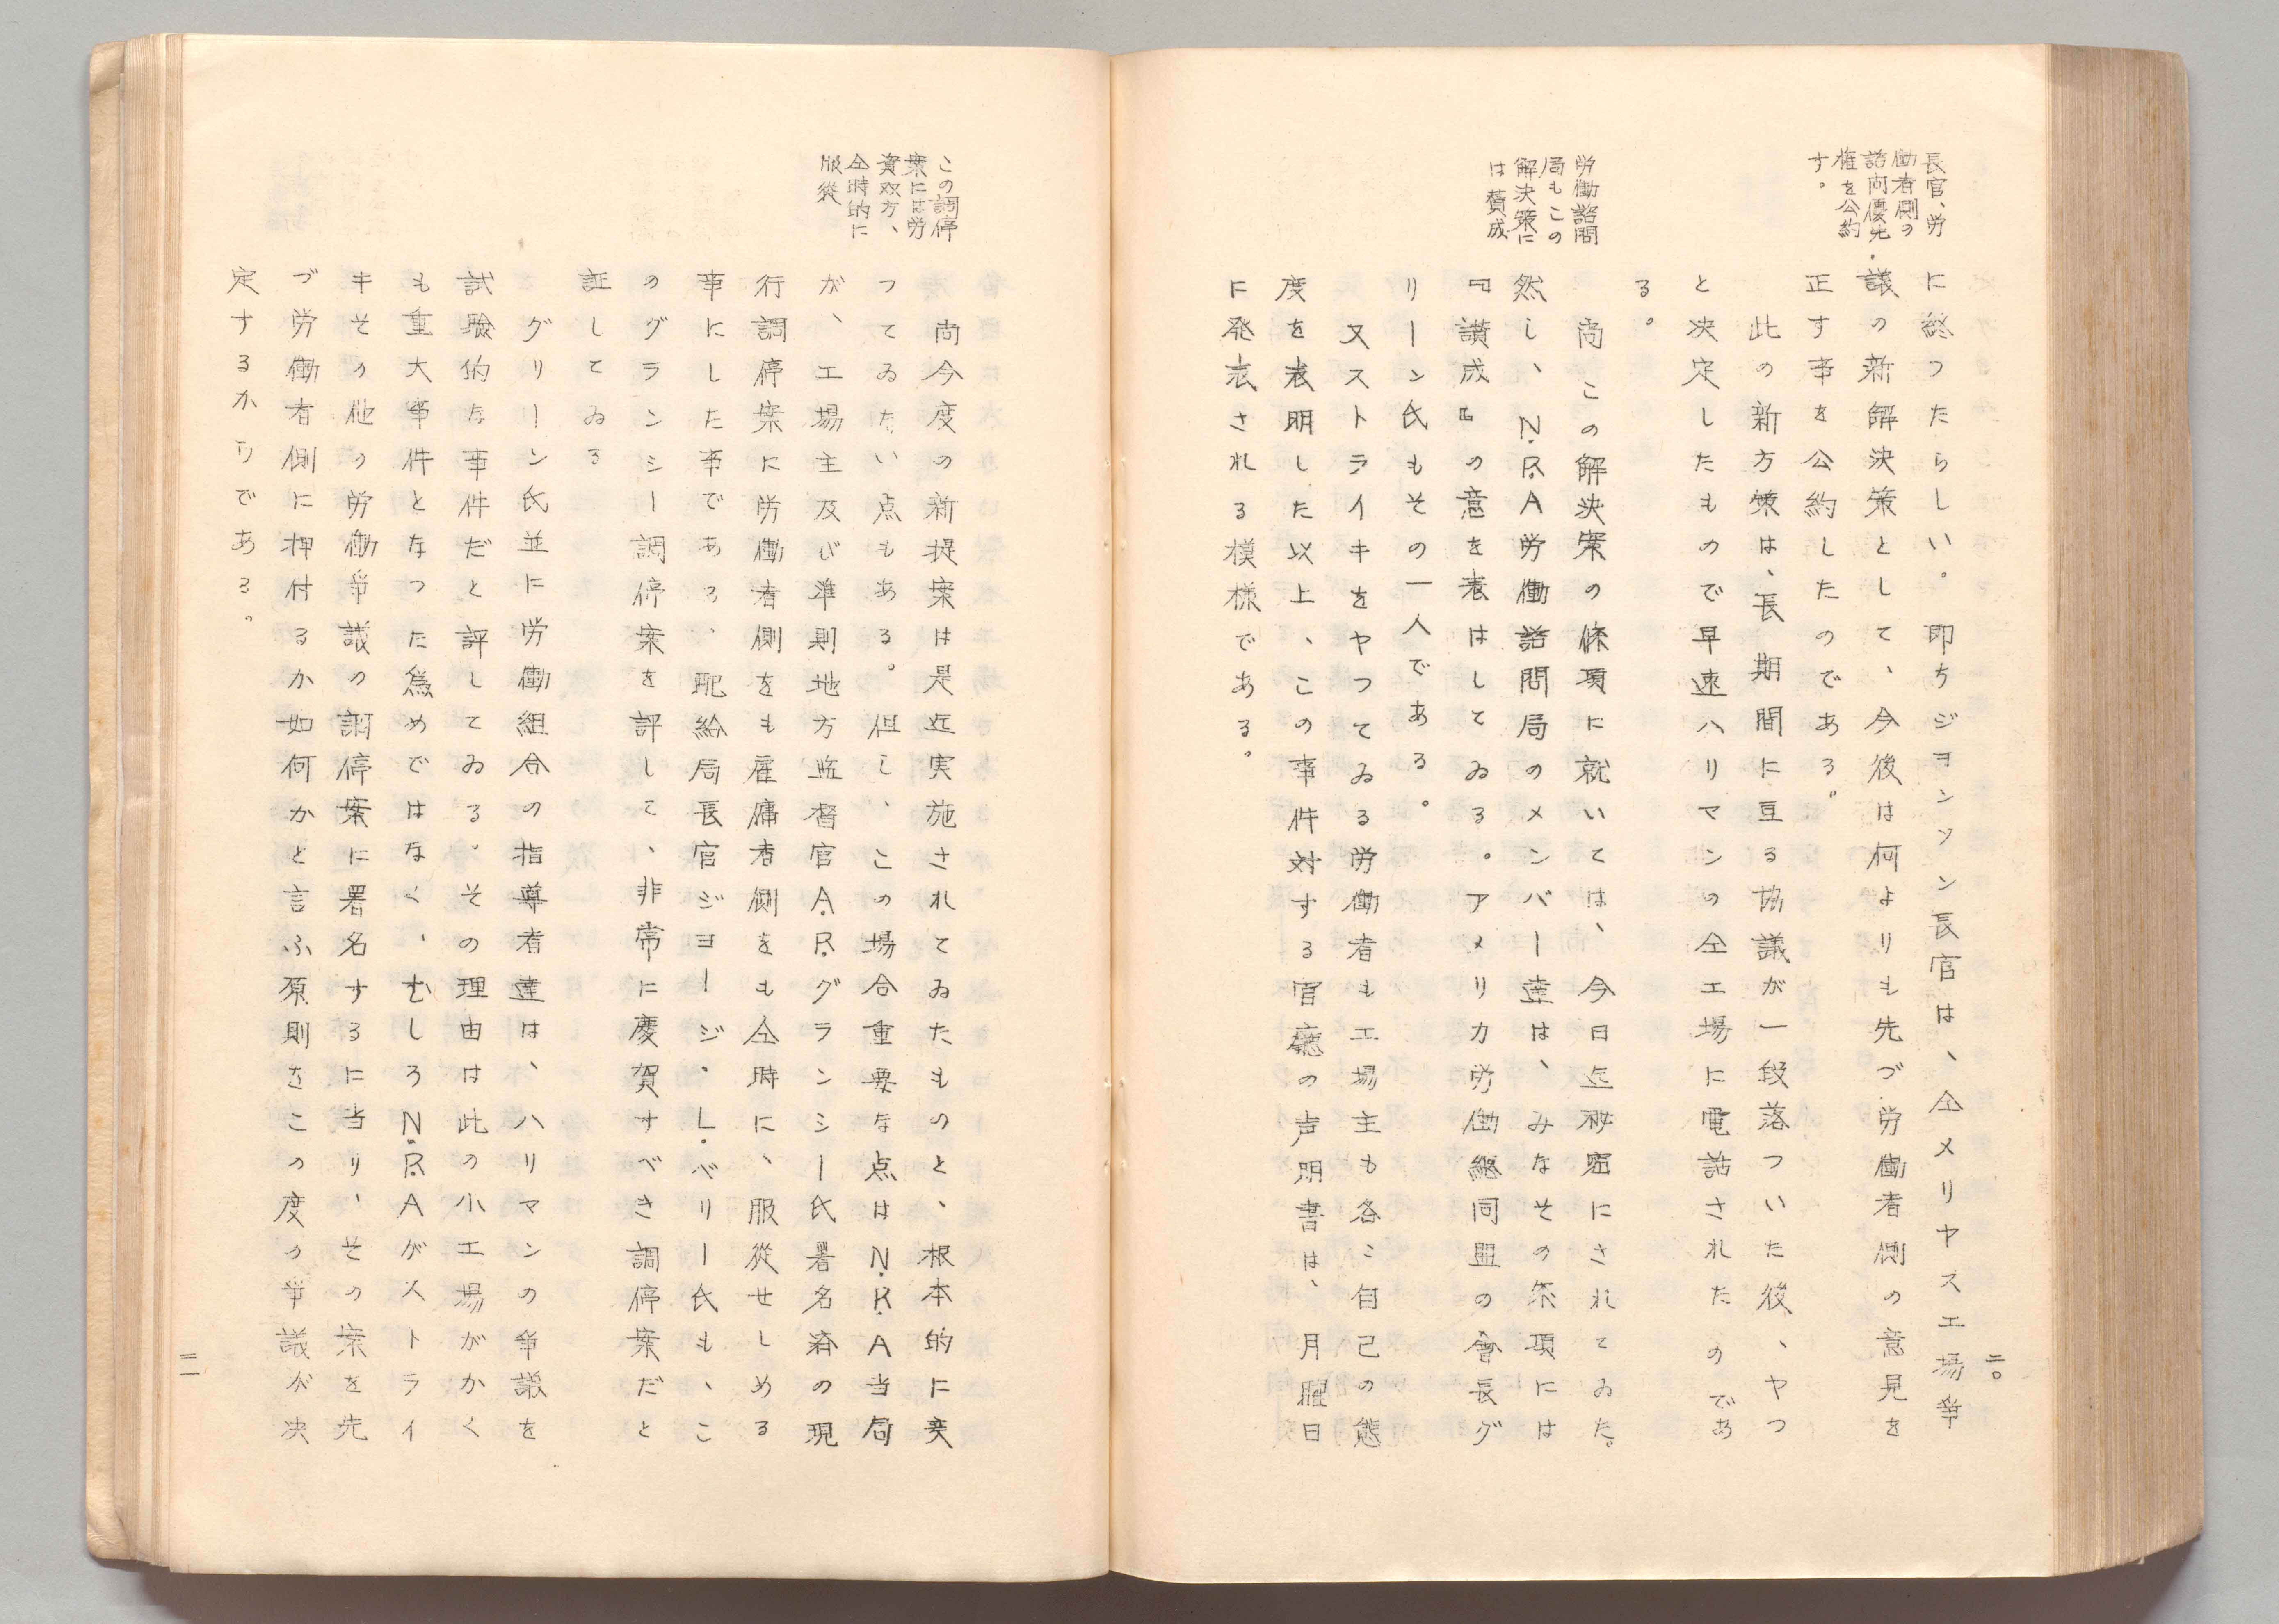 長官、労
働者側の
諮問優先
権を公約
す。
に終つたらしい。即ちジヨンソン長官は、仝メリヤス工場争
議の新解決策として、今後は何よりも先づ労働者側の意見を
正す事を公約したのである。
此の新方策は、長期間に亘る協議が一段落ついた後、ヤつ
と決定したもので早速ハリマンの仝工場に電話されたのであ
る。
労働諮問
局もこの
解決策に
は賛成
尚この解決案の條項に就いては、今日迄秘密にされてゐた。
然し、N.R.A労働諮問局のメンバー達は、みなその条項には
『讃成』の意を表はしてゐる。アメリカ労働総同盟の會長グ
リーン氏もその一人である。
又ストライキをヤつてゐる労働者も工場主も各〻自己の態
度を表明した以上、この事件対する官廳の声明書は、月曜日
に発表される模様である。
二〇
この調停
案には労
資双方、
仝時的に
服從
尚今度の新提案は是迄実施されてゐたものと、根本的に異
つてゐない点もある。但し、この場合重要な点はN.R.A当局
が、工場主及び準則地方監督官A.R.グランシー氏署名済の現
行調停案に労働者側をも雇傭者側をも仝時に、服從せしめる
事にした事である、配給局長官ジヨージ.L.ベリー氏も、こ
のグランシー調停案を評して、非常に慶賀すべき調停案だと
証してゐる
グリーン氏並に労働組合の指導者達は、ハリマンの争議を
試験的な事件だと評してゐる。その理由は此の小工場がかく
も重大事件となつた為めではなく、むしろN.R.Aがストライ
キその他の労働争議の調停案に署名するに当り、その案を先
づ労働者側に押付るか如何かと言ふ原則をこの度の争議が決
定するからである。
二一